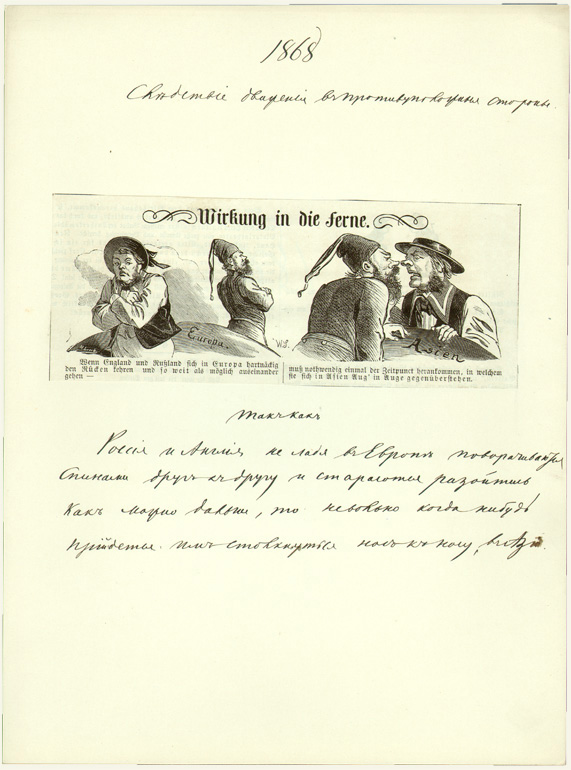 1868
Слѣдствіе движенія въ противуположныя стороны.
Wirkung in die Ferne.
Europa.
Asien
Wenn England und Rußland sich in Europa hartnäckig
den Rücken kehren und so weit als möglich auseinander
gehen —
muß nothwendig einmal der Zeitpunct herankommen, in welchem
sie sich in Asien Aug' in Auge gegenüberstehen.
Такъ какъ
Россія и Англія не ладя въ Европѣ поворачиваются
спинами другъ къ другу и стараются разойтись
какъ можно дальше, то невольно когда нибудь
прійдется имъ столкнуться носъ къ носу, въ Азіи.